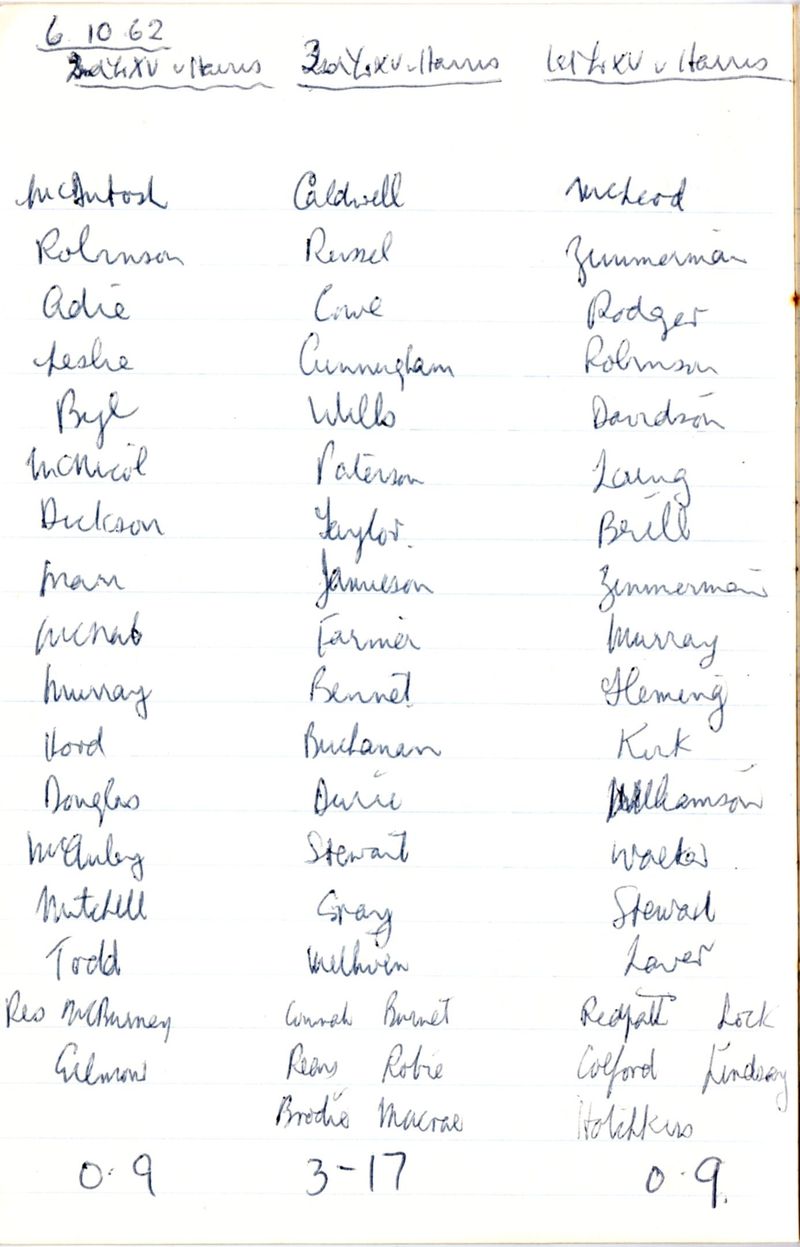 6. 10. 62
2nd Yr XV v Harris 3rd Yr XV v Harris 1st Yr XV v Harris
McIntosh Caldwell McLeod
Robinson Russel Zimmerman
Adie Cowe Rodger
Leslie Cunningham Robinson
Byl Wills Davidson
McNicol Paterson Laing
Dickson Taylor. Brill
Main Jamieson Zimmerman
McNab Farmer Murray
Murray Bennet Fleming
Hood Buchanan Kirk
Douglas Durie Williamson
McAuley Stewart Walker
Mitchell Gray Stewart
Todd Methven Laver
Res McBurney Burnet Redpath Lock
Gilmour Robie Colford Lindsay
Brodie Macrae Hotchkiss
0 . 9 3-17 0 . 9.